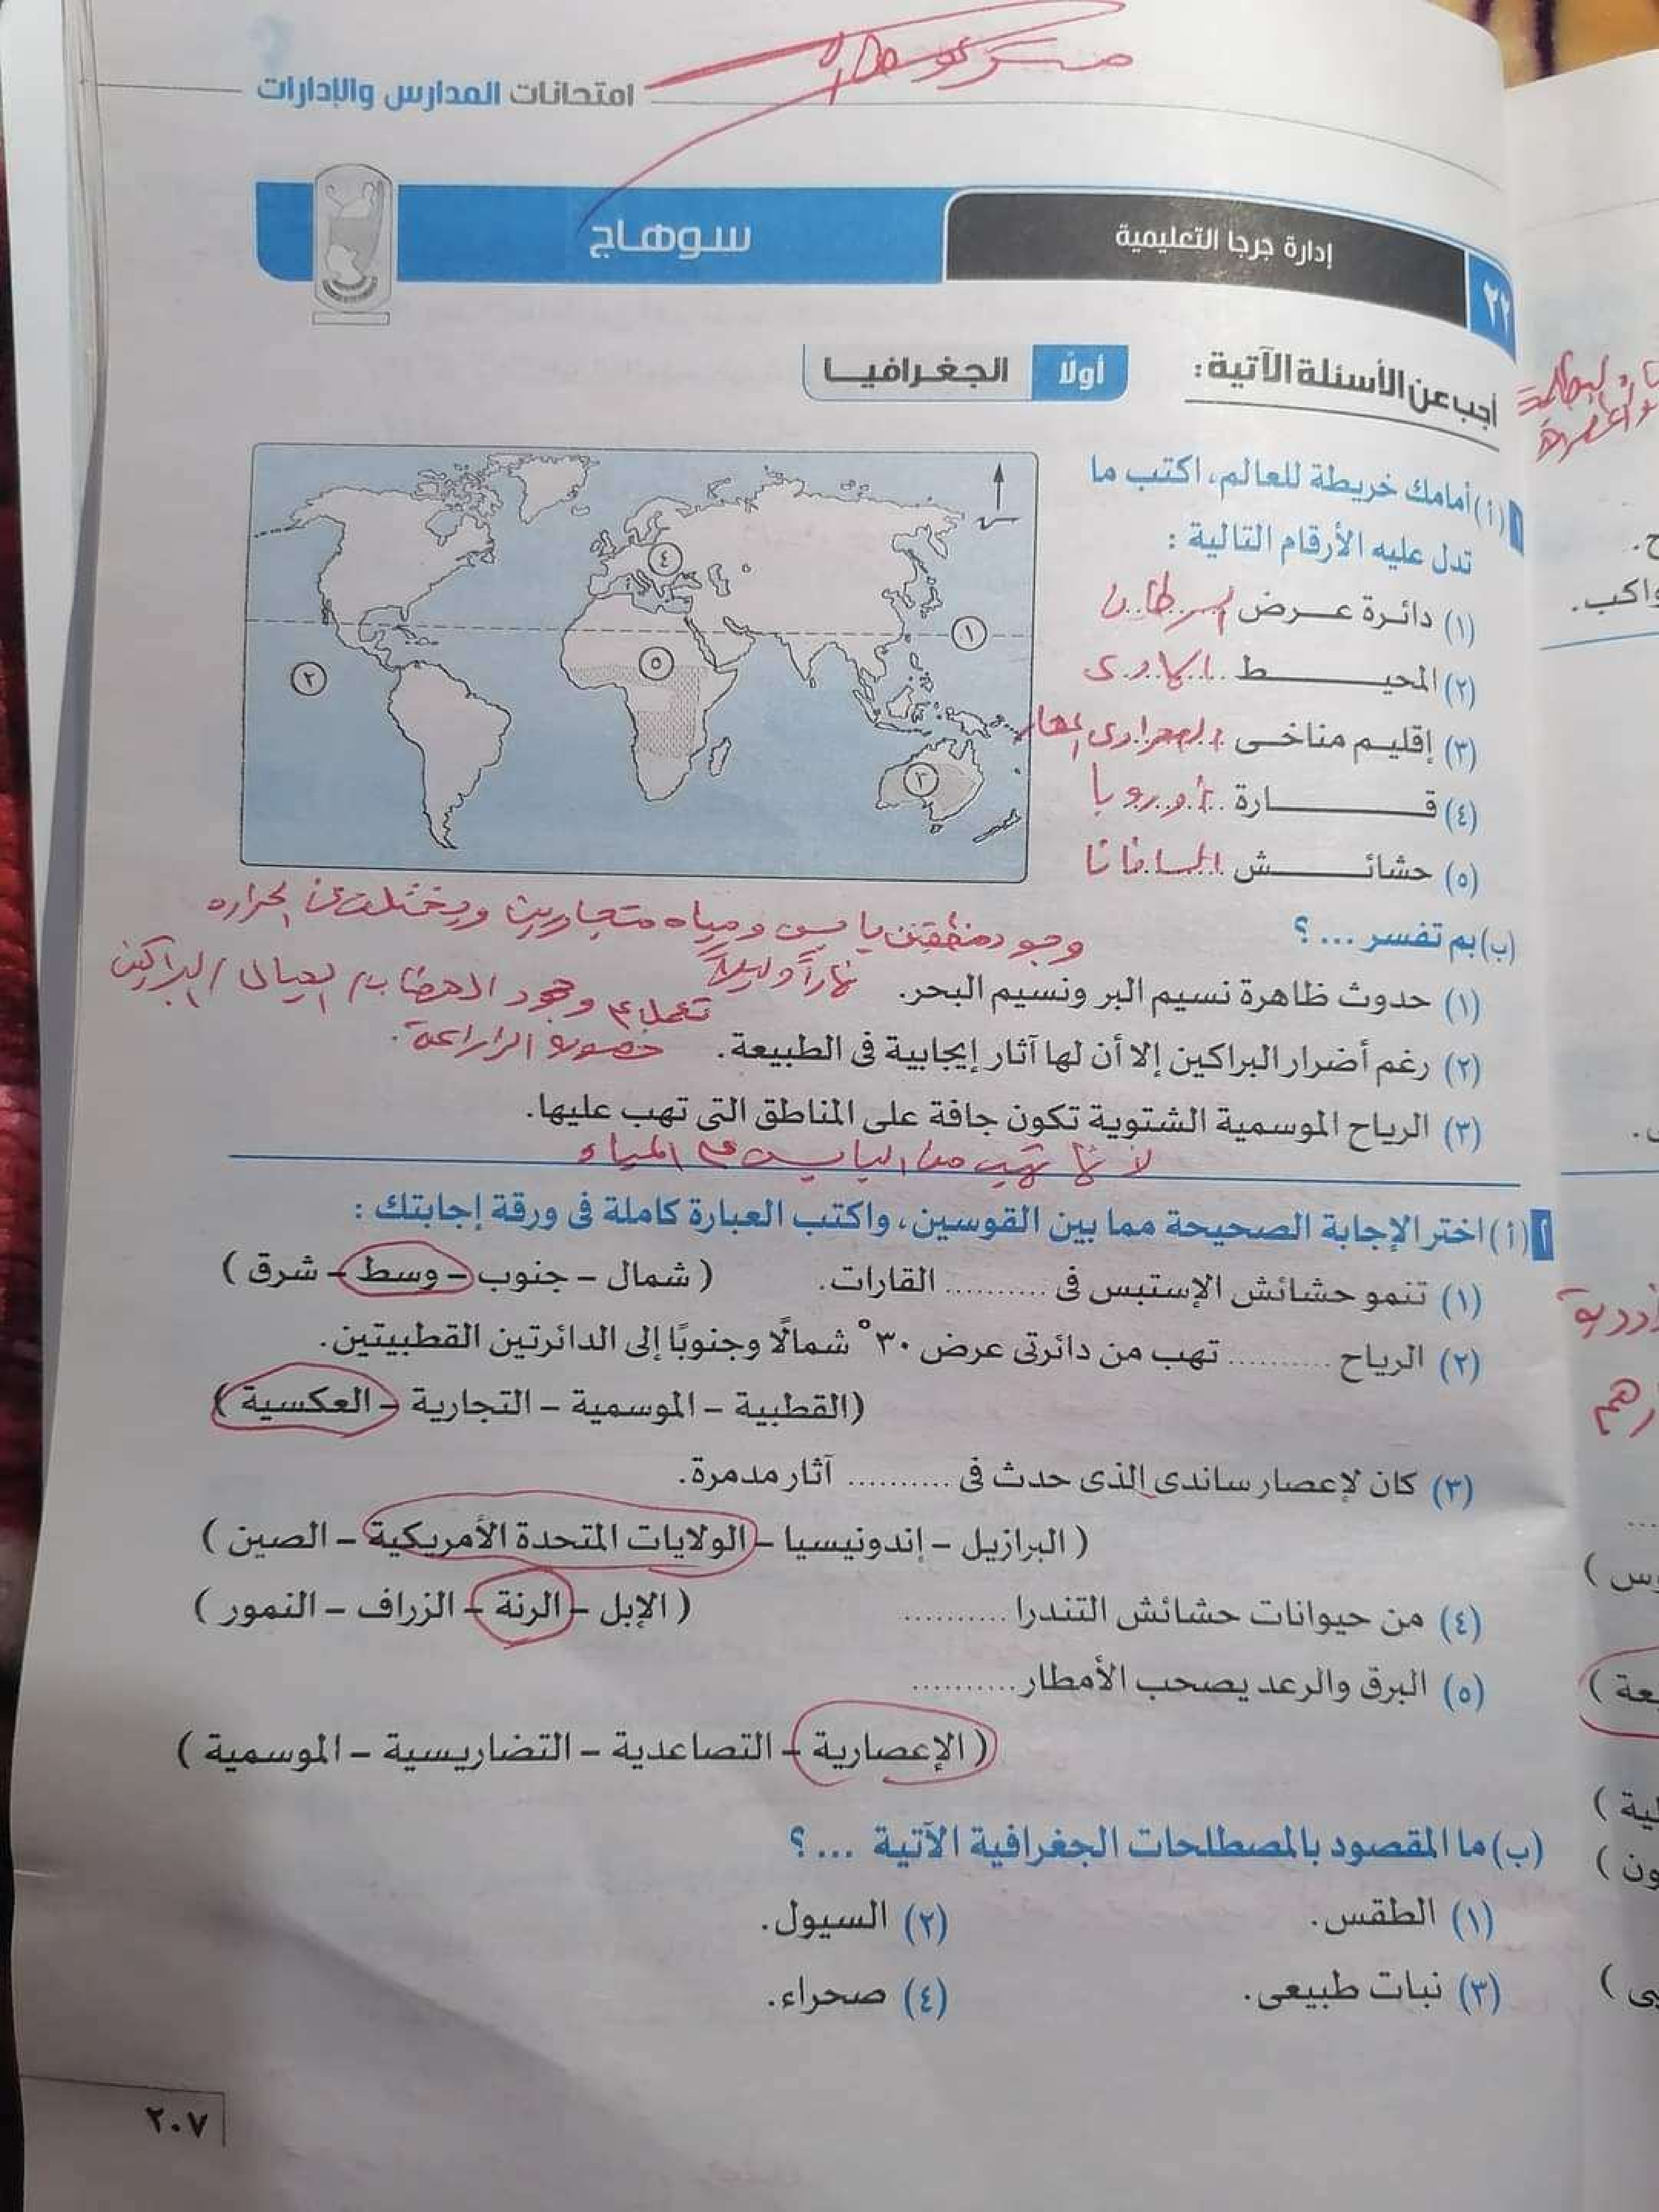 مستر عبدالله
امتحانات المدارس والإدارات
٢٢
إدارة جرجا التعليمية
سوهاج
أجب عن الأسئلة الآتية :
أولًا الجغرافيا
١ (أ) أمامك خريطة للعالم، اكتب ما
تدل عليه الأرقام التالية :
(١) دائرة عرض السرطان
(٢) المحيط الهادى
(٣) إقليم مناخى الصحراوى الحار
(٤) قارة أوروبا
(٥) حشائش السافانا
١
٢
٣
٤
٥
(ب) بم تفسر ... ؟
وجود منطقتين يابس ومياه متجاورين ومختلفتان الحراره
نهاراً وليلاً
(١) حدوث ظاهرة نسيم البر ونسيم البحر.
تعمل على وجود الهضاب / الجبال / البراكين
خصوبة الزراعة.
(٢) رغم أضرار البراكين إلا أن لها آثار إيجابية فى الطبيعة.
(٣) الرياح الموسمية الشتوية تكون جافة على المناطق التى تهب عليها.
لأنها تهب من اليابس على المياه
٢ (أ) اختر الإجابة الصحيحة مما بين القوسين، واكتب العبارة كاملة فى ورقة إجابتك :
(١) تنمو حشائش الإستبس فى .......... القارات. ( شمال – جنوب – وسط – شرق )
(٢) الرياح .......... تهب من دائرتى عرض ٣٠° شمالًا وجنوبًا إلى الدائرتين القطبيتين.
(القطبية – الموسمية – التجارية – العكسية )
(٣) كان لإعصار ساندى الذى حدث فى .......... آثار مدمرة.
( البرازيل – إندونيسيا – الولايات المتحدة الأمريكية – الصين )
(٤) من حيوانات حشائش التندرا .......... ( الإبل – الرنة – الزراف – النمور )
(٥) البرق والرعد يصحب الأمطار ..........
( الإعصارية – التصاعدية – التضاريسية – الموسمية )
(ب) ما المقصود بالمصطلحات الجغرافية الآتية ... ؟
(١) الطقس. (٢) السيول.
(٣) نبات طبيعى. (٤) صحراء.
٢٠٧